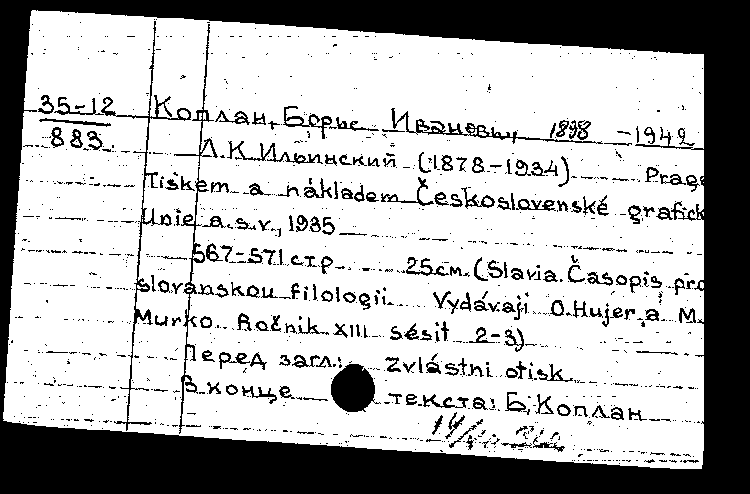 35-12 Коплан, Борис Иванович 1898 -1942
883
Л.К. Ильинский (1878-1934) Prage
Tiskem a nákladem Československé grafick
Unie a.s.v., 1935
567-571 стр 25см. (Slavia. Časopis pro
slovanskou filologii. Vydávaji O.Hujer a M.
Murko. Ročnik XIII sésit 2-3)
Перед загл.: Zvlástni otisk.
В конце текста: Б. Коплан